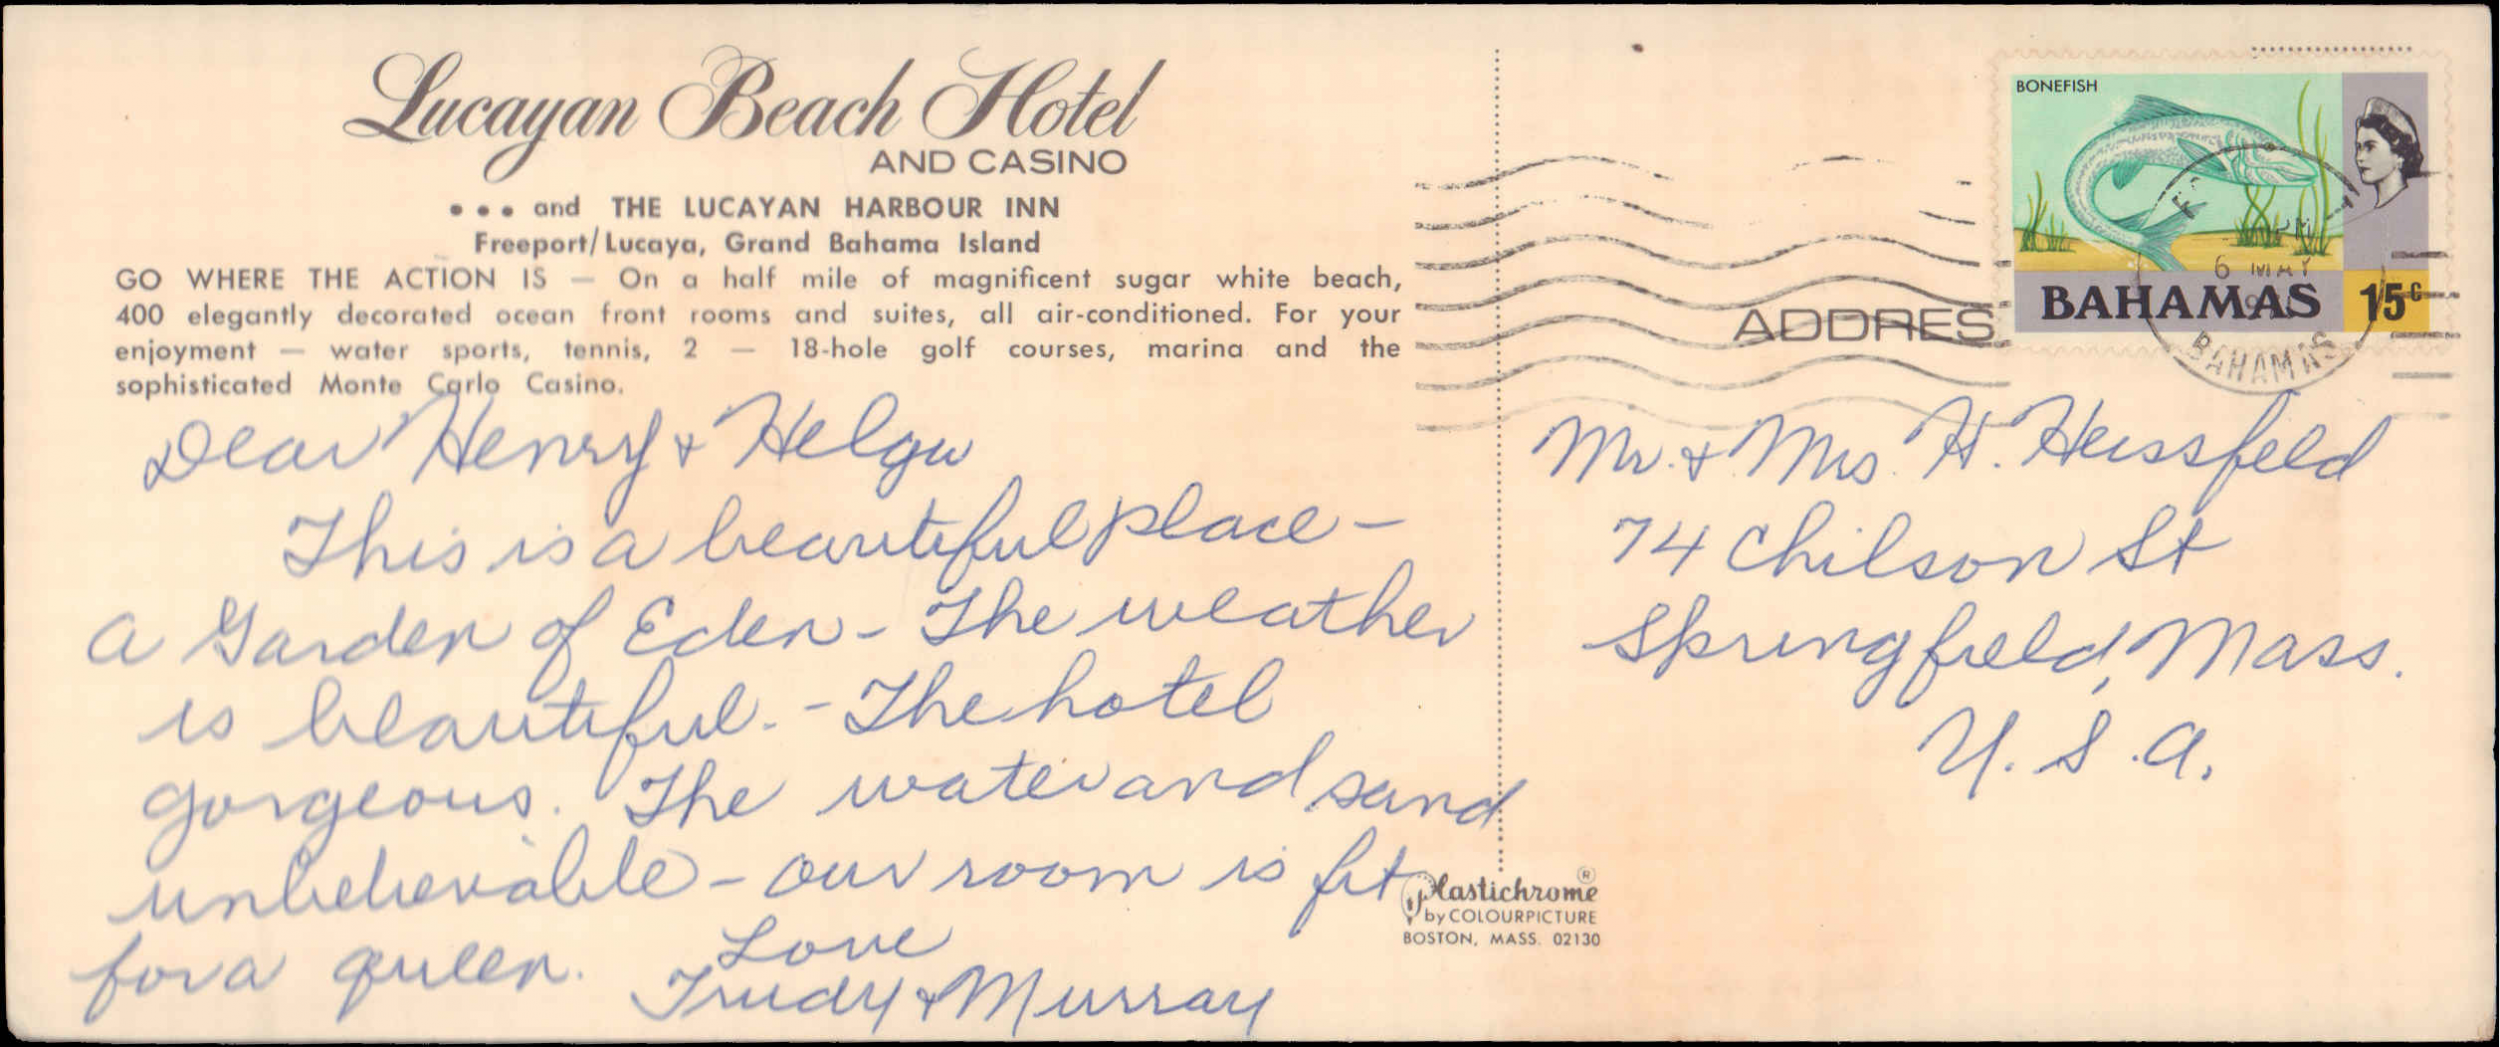 Lucayan Beach Hotel
AND CASINO
••• and THE LUCAYAN HARBOUR INN
Freeport/Lucaya, Grand Bahama Island
GO WHERE THE ACTION IS — On a half mile of magnificent sugar white beach,
400 elegantly decorated ocean front rooms and suites, all air-conditioned. For your
enjoyment — water sports, tennis, 2 — 18-hole golf courses, marina and the
sophisticated Monte Carlo Casino.
Dear Henry & Helga
This is a beautiful place -
a Garden of Eden - The weather
is beautiful. - The hotel
gorgeous. The water and sand
unbelievable - our room is fit
for a queen.
Love
Trudy & Murray
BONEFISH
BAHAMAS 15c
PM
6 MAY
BAHAMAS
ADDRES
Mr. & Mrs. H. Heissfeld
74 Chilson St
Springfield, Mass.
U.S.A.
Plastichrome ®
by COLOURPICTURE
BOSTON, MASS. 02130